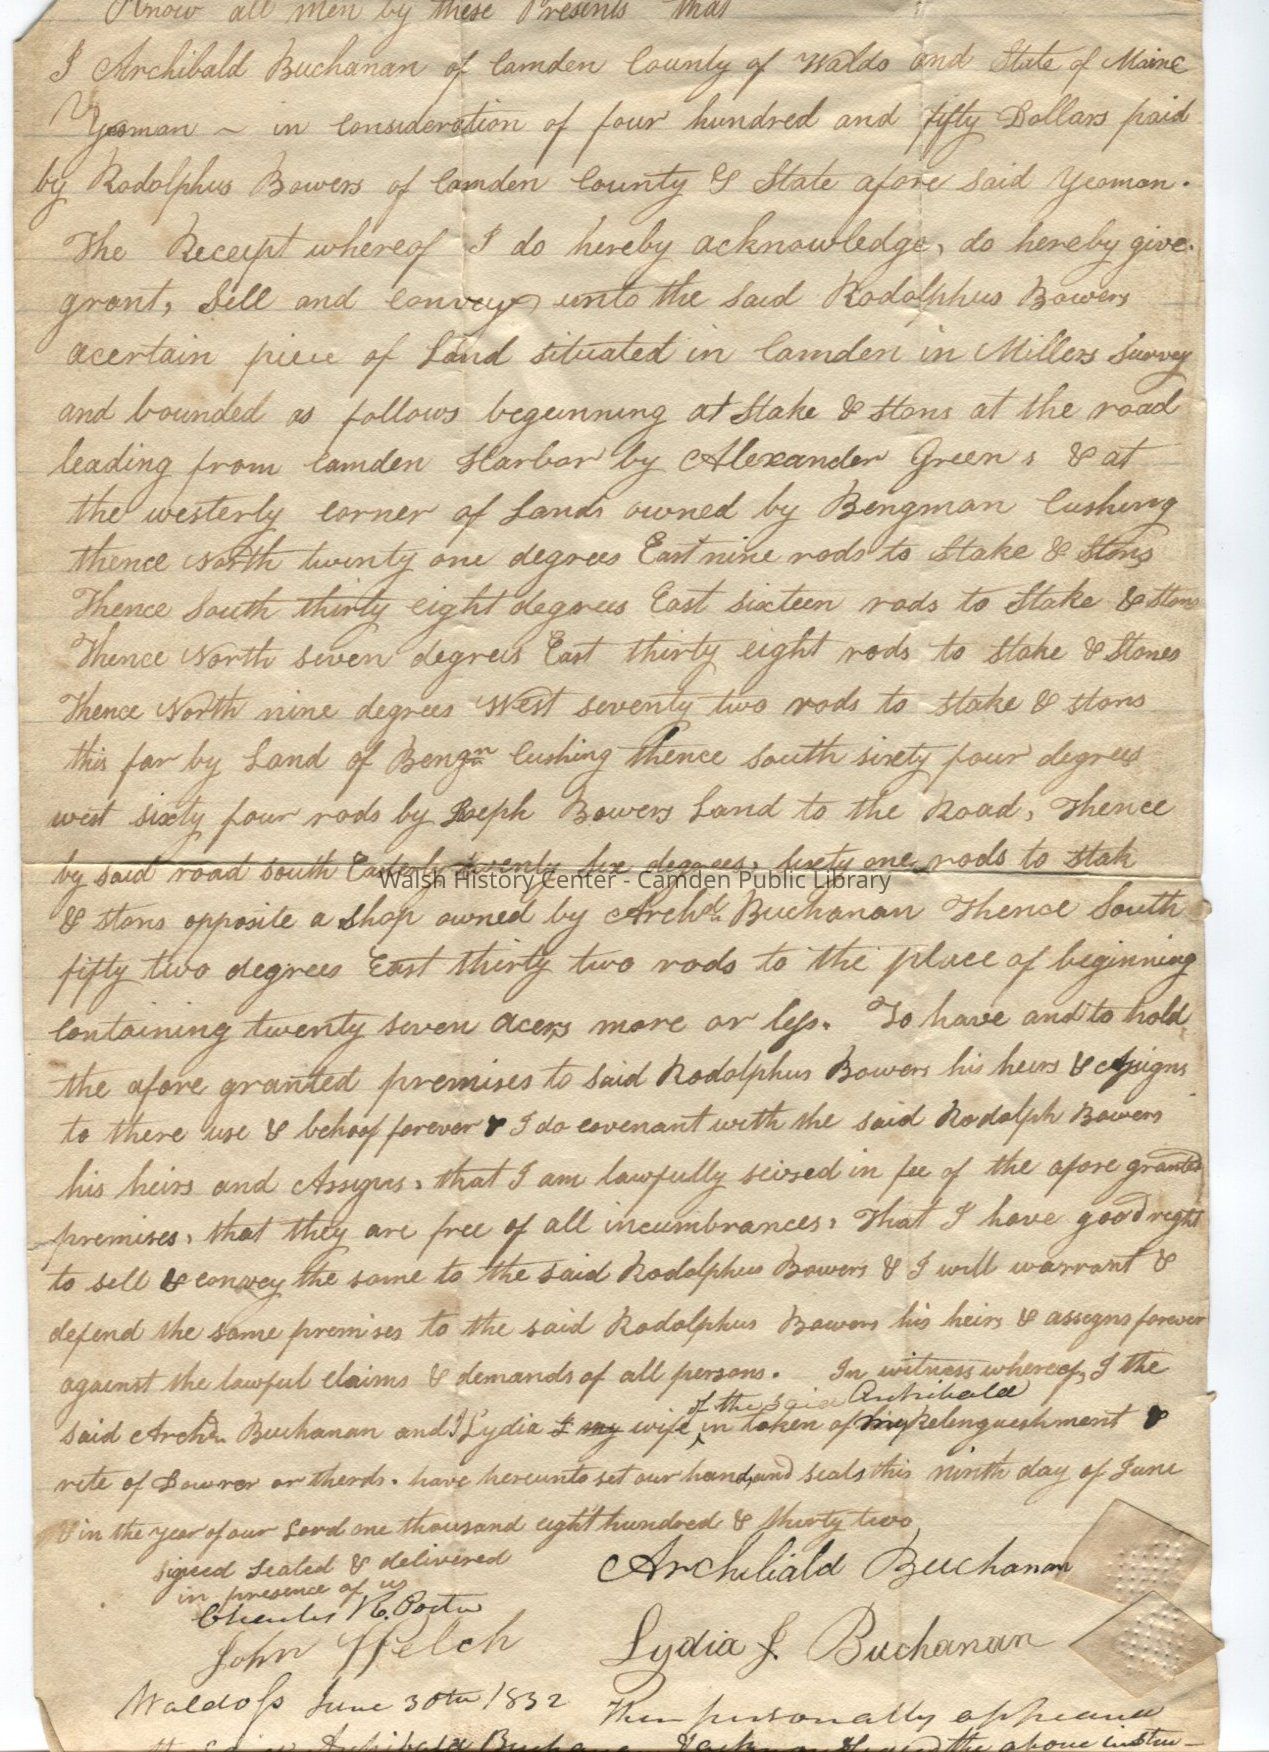 Know all Men by these Presents that
I Archibald Buchanan of Camden County of Waldo and State of Maine
Yeoman ~ in consideration of four hundred and fifty Dollars paid
by Rodolphus Bowers of Camden County & State afore said Yeoman.
The Receipt whereof I do hereby acknowledge, do hereby give.
grant, Sell and convey unto the said Rodolphus Bowers
acertain piece of Land situated in Camden in Millers Survey
and bounded as follows begeunning at Stake & stons at the road
leading from Camden Harbor by Alexander Green s & at
the westerly corner of Lands owned by Bengman Cushing
thence North twenty one degrees East nine rods to Stake & Stons
Thence South thirty eight degrees East sixteen rods to Stake & stons
Thence North seven degrees East thirty eight rods to Stake & Stones
Thence North nine degrees West seventy two rods to stake & stons
this far by Land of Bengn Cushing thence South sixty four degrees
west sixty four rods by Joseph Bowers Land to the Road, Thence
by said road south Easterly twenty six degrees, sixty one rods to stak
Walsh History Center - Camden Public Library
& stons opposite a shop owned by Archd Buchanan Thence South
fifty two degrees East thirty two rods to the place of beginning
containing twenty seven acers more or less. To have and to hold
the afore granted premises to said Rodolphus Bowers his heirs & assigns
to there use & behoof forever & I do covenant with the said Rodolph Bowers
his heirs and Assigns, that I am lawfully seized in fee of the afore granted
premises, that they are free of all incumbrances, That I have good right
to sell & convey the same to the said Rodolphus Bowers & I will warrant &
defend the same premises to the said Rodolphus Bowers his heirs & assigns forever
against the lawful claims & demands of all persons. In witness whereof, I the
of the said Archibald
said Archd Buchanan and I Lydia I my wife in token of my Relenqueshment &
rite of Dowrer or therds. have hereunto set our hand, and seals this ninth day of June
in the year of our Lord one thousand eight hundred & thirty two
signed sealed & delivered
in presence of us
Charles R. Porter
John Welch
Archibald Buchanan
Lydia J Buchanan
Waldo ss June 30th 1832 Then personally appeared
Archibald Buchanan & acknowledged the above instru-